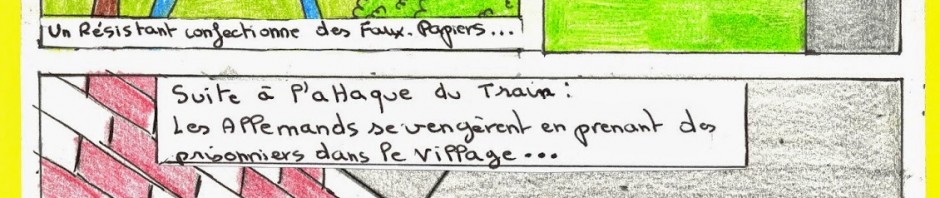 Un Résistant confectionne des Faux-Papiers...
Suite à l'attaque du Train :
Les Allemands se vengèrent en prenant des
prisonniers dans le village...